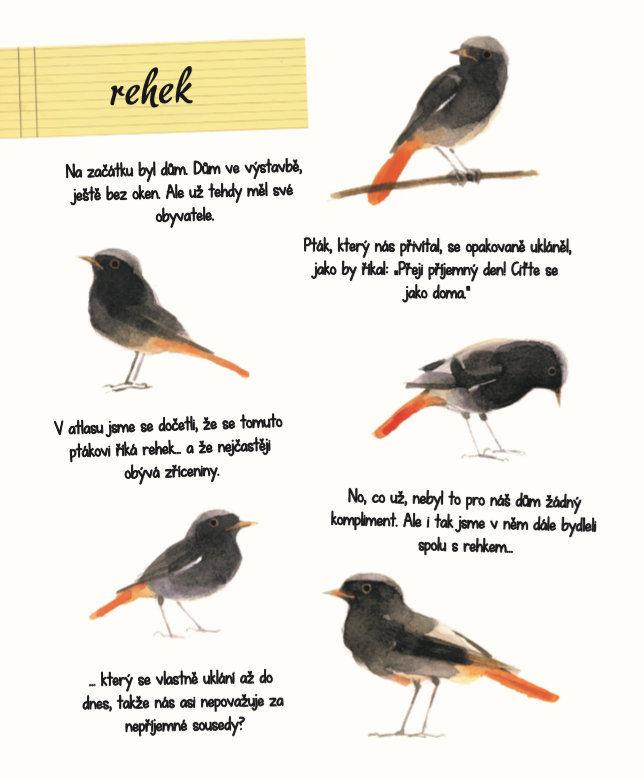 rehek
Na začátku byl dům. Dům ve výstavbě,
ještě bez oken. Ale už tehdy měl své
obyvatele.
Pták, který nás přivítal, se opakovaně ukláněl,
jako by říkal: „Přeji příjemný den! Ciťte se
jako doma."
V atlasu jsme se dočetli, že se tomuto
ptákovi říká rehek... a že nejčastěji
obývá zříceniny.
No, co už, nebyl to pro náš dům žádný
kompliment. Ale i tak jsme v něm dále bydleli
spolu s rehkem...
... který se vlastně uklání až do
dnes, takže nás asi nepovažuje za
nepříjemné sousedy?